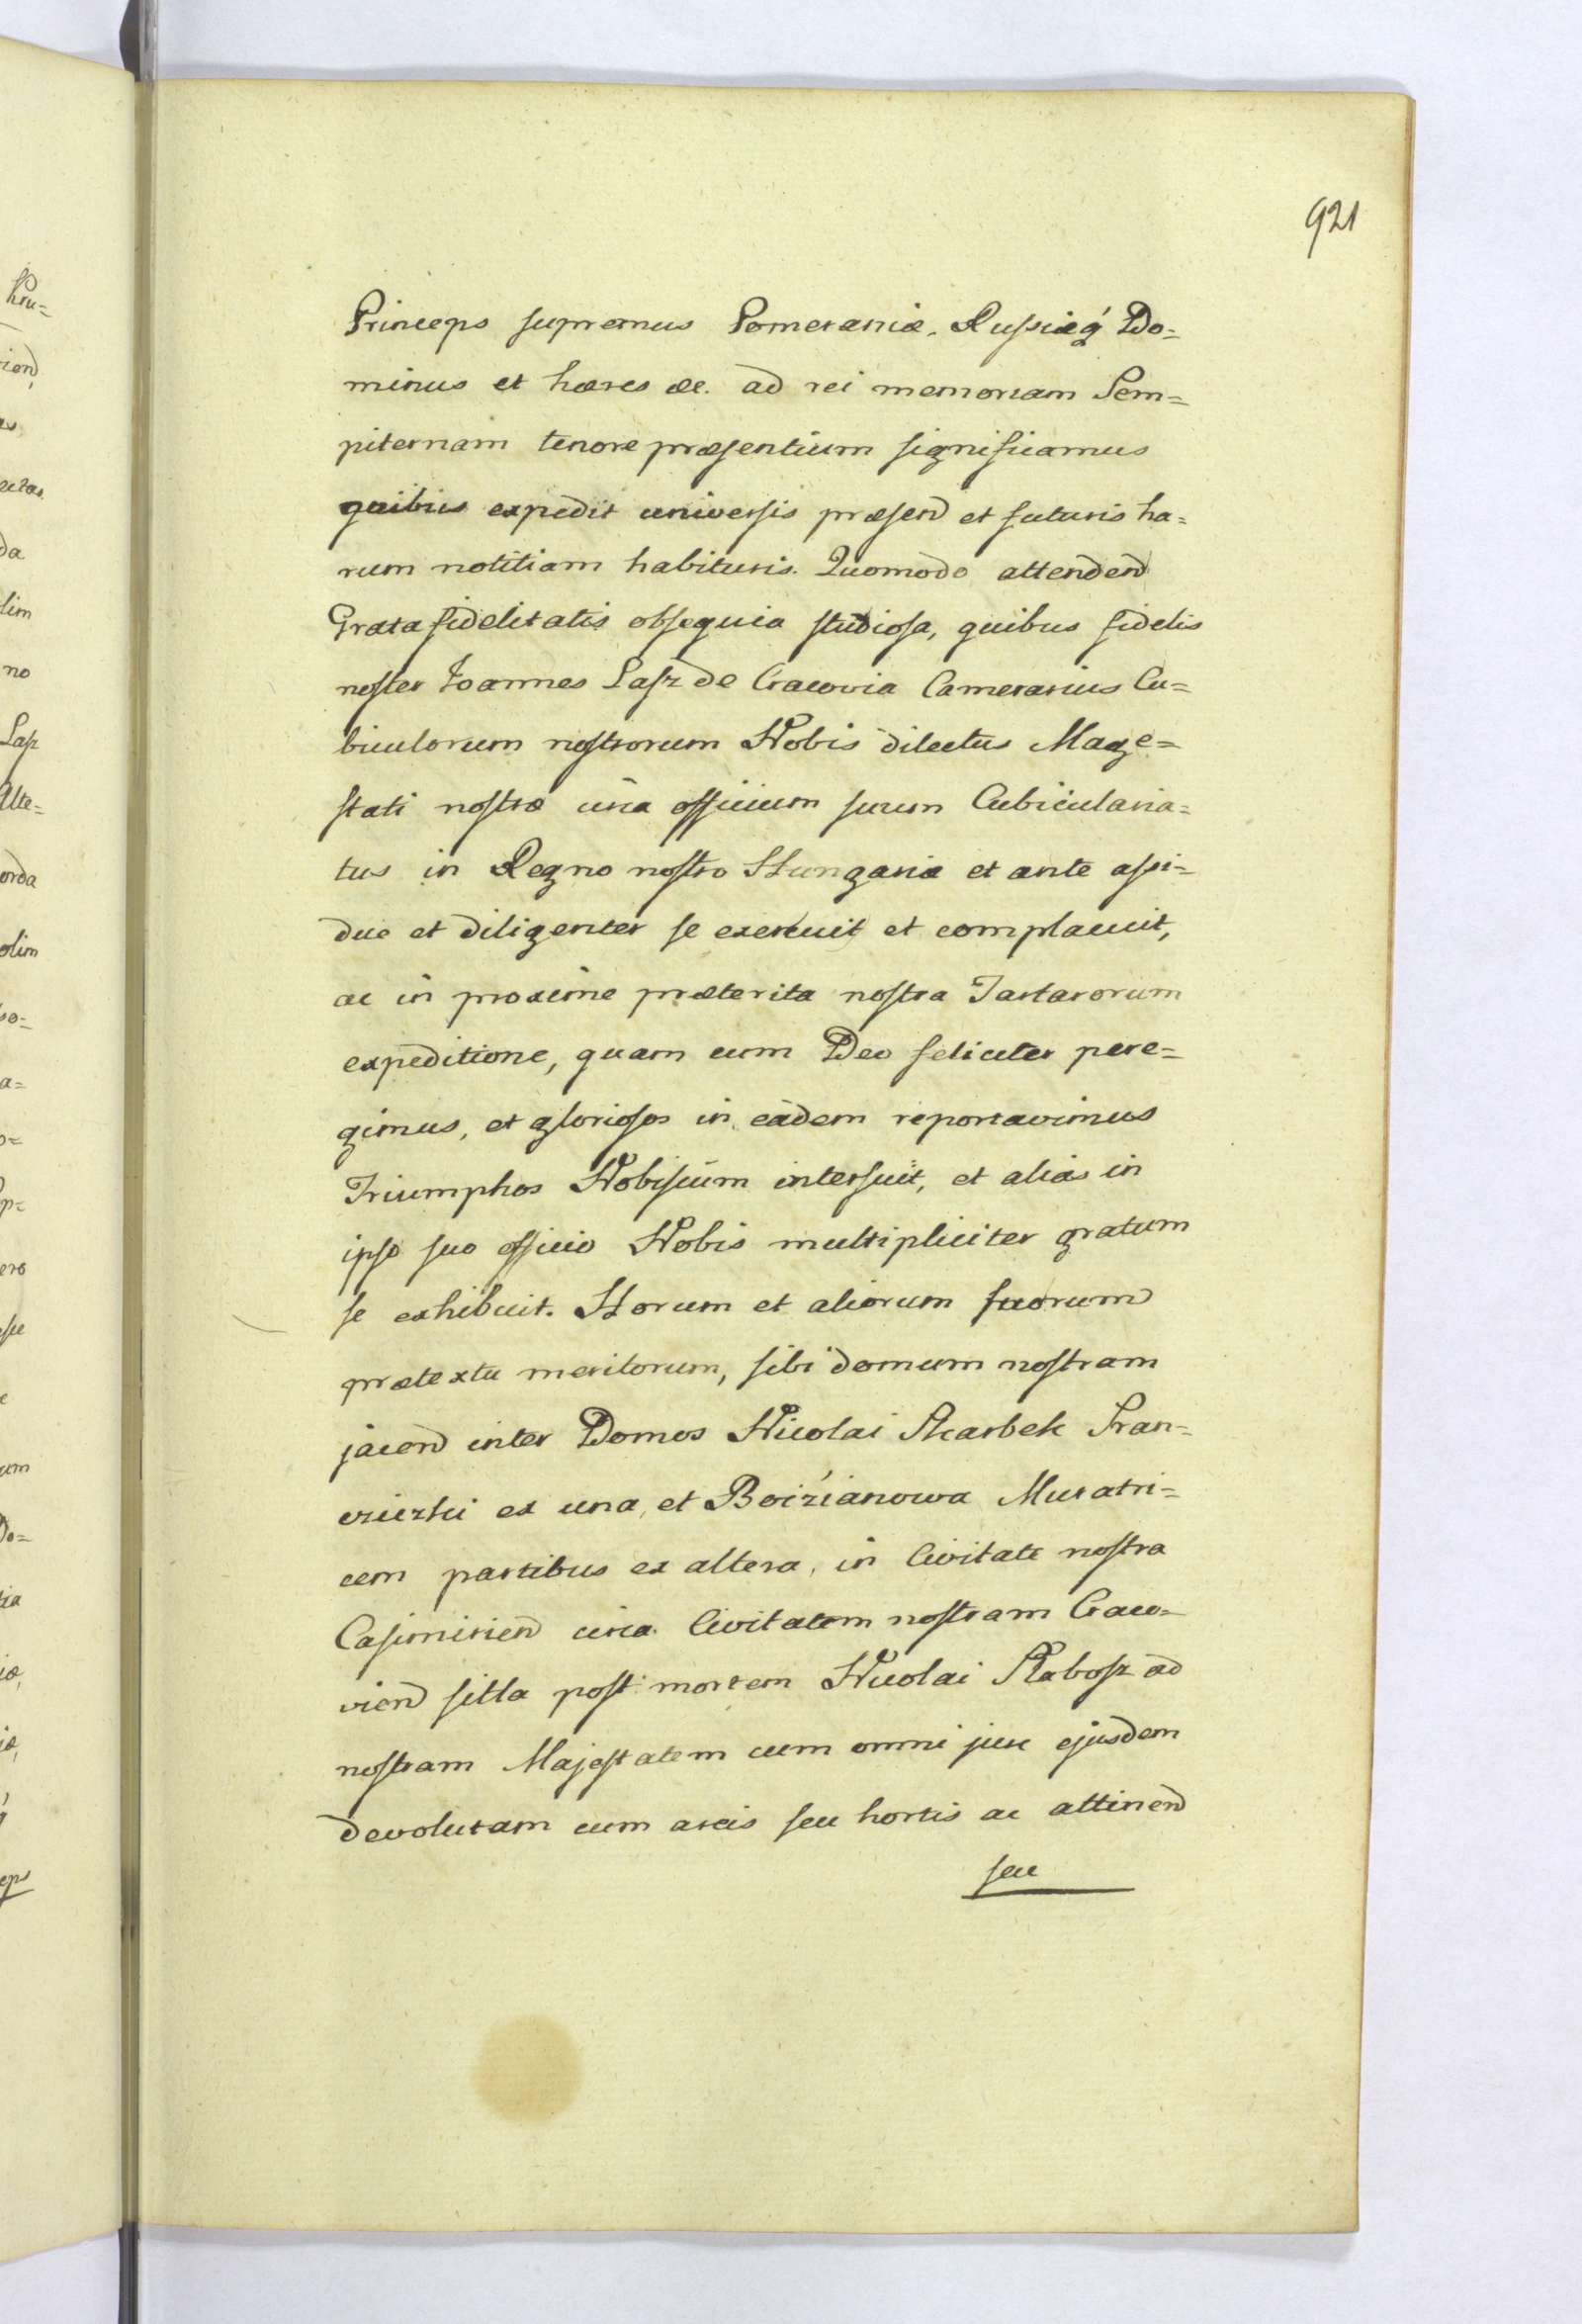 921
Princeps supremus Pomeraniæ, Russiæq́ Do=
minus et hæres &c. ad rei memoriam Sem=
piternam tenore præsentium significamus
quibus expedit universis præsend et futuris ha=
rum notitiam habituris. Quomodo attendend
Grata fidelitatis obsequia studiosa, quibus fidelis
noster Joannes Lasz de Cracovia Camerarius Cu=
biculorum nostrorum Nobis dilectus Mage=
stati nostræ circa officium suum Cubicularia=
tus in Regno nostro Hungariæ et ante assi=
due et diligenter se exercuit et complacuit,
ac in proxime præterita nostra Tartarorum
expeditione, quam cum Deo feliciter pere=
gimus, et gloriosos in eadem reportavimus
Triumphos Nobiscum interfuit, et alias in
ipso suo officio Nobis multipliciter gratum
se exhibuit. Horum et aliorum suorum
prætextu meritorum, sibi domum nostram
jacend inter Domos Nicolai Skarbek Fran=
ex una, et Boizianowa Muratri=
cem partibus ex altera, in Civitate nostra
Casimiriend circa Civitatem nostram Craco=
viend sitta post mortem Nicolai Rabosz ad
nostram Majestatem cum omni jure ejusdem
devolutam cum areis seu hortis ac attinend
seu